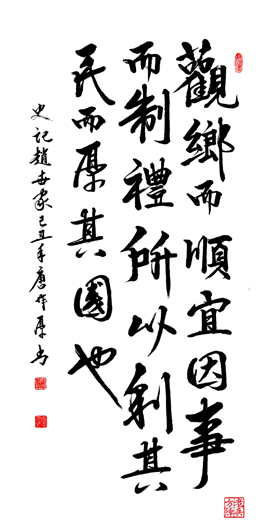 觀鄉而順宜因事
而制禮所以利其
民而厚其國也
史記趙世家己丑年唐作厚書